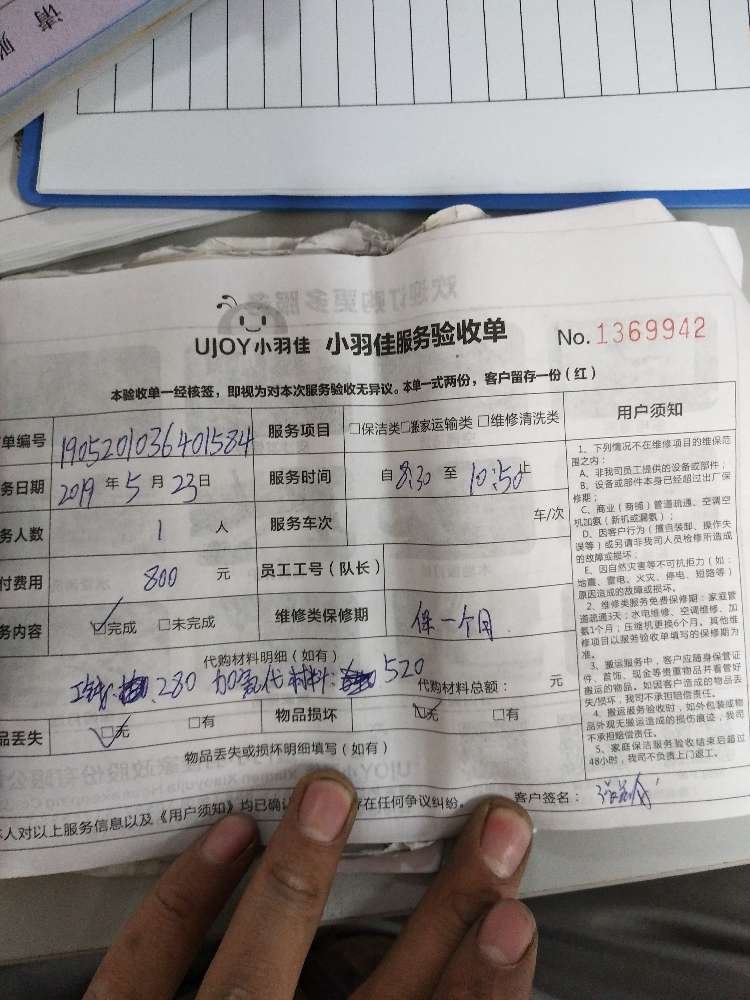 请
UJOY小羽佳 小羽佳服务验收单 No. 1369942
本验收单一经核签，即视为对本次服务验收无异议。本单一式两份，客户留存一份（红）
单编号 1905201036401584 服务项目 □保洁类□搬家运输类□维修清洗类
务日期 2019年5月23日 服务时间 自8:30至10:50止
务人数 1 人 服务车次 车/次
付费用 800 元 员工工号（队长）
务内容 ☑完成 □未完成 维修类保修期 保一个月
代购材料明细（如有）
280 加氟 材料: 520 代购材料总额： 元
品丢失 ☑无 □有 物品损坏 ☑无 □有
物品丢失或损坏明细填写（如有）
本人对以上服务信息以及《用户须知》均已确认 存在任何争议纠纷。 客户签名：
用户须知
1、下列情况不在维修项目的维保范
围之内：
A、非我司员工提供的设备或部件；
B、设备或部件本身已经超过出厂保
修期；
C、商业（商铺）管道疏通、空调空
机加氨（新机或漏氨）；
D、因客户行为（擅自装卸、操作失
误等）或另请非我司人员检修所造成
的故障或损坏；
E、因自然灾害等不可抗拒力（如：
地震、雷电、火灾、停电、短路等）
原因造成的故障或损坏。
2、维修类服务免费保修期：家庭管
道疏通3天；水电维修、空调维修、加
氨1个月；压缩机更换6个月，其他维
修项目以服务验收单填写的保修期为
准。
3、搬运服务中，客户应随身保管证
件、首饰、现金等贵重物品并看管好
搬运的物品。如因客户造成的物品丢
失/损坏，我司不承担赔偿责任。
4、搬运服务验收时，如外包装或物
品外观无搬运造成的损伤痕迹，我司
不承担赔偿责任。
5、家庭保洁服务验收结束后超过
48小时，我司不负责上门返工。